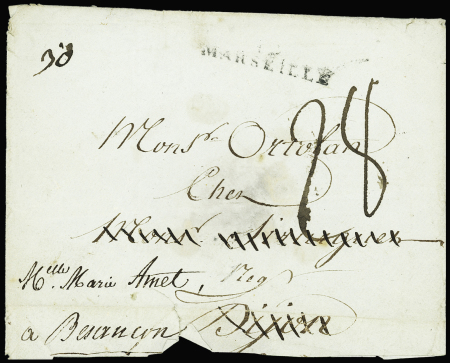 38
MARSEILLE
28
Monsr. Ortolan
Chez
Melle. Marie Amet, Neg
a Besançon Dijon